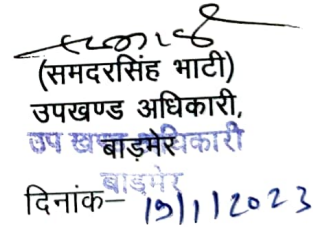 (समदरसिंह भाटी)
उपखण्ड अधिकारी,
उप खण्ड अधिकारी
बाड़मेर
बाड़मेर
दिनांक– 19/1/2023